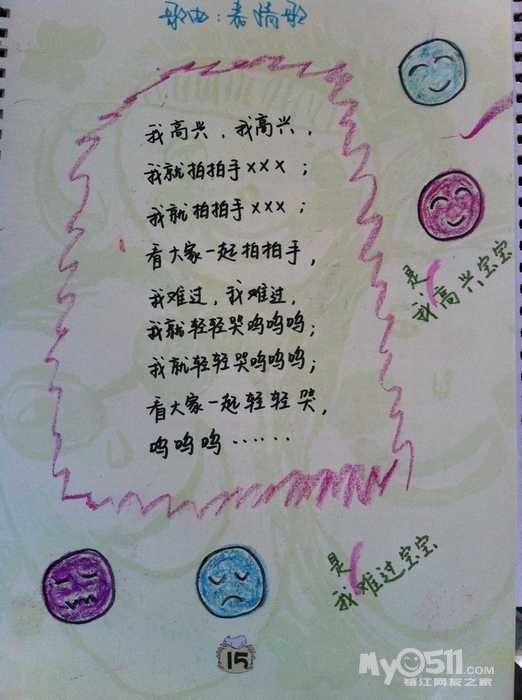 歌曲：表情歌
我高兴，我高兴，
我就拍拍手×××；
我就拍拍手×××；
看大家一起拍拍手，
我难过，我难过，
我就轻轻哭呜呜呜；
我就轻轻哭呜呜呜；
看大家一起轻轻哭，
呜呜呜……
是
我高兴宝宝
是
我难过宝宝
15
My0511.com
镇江网友之家